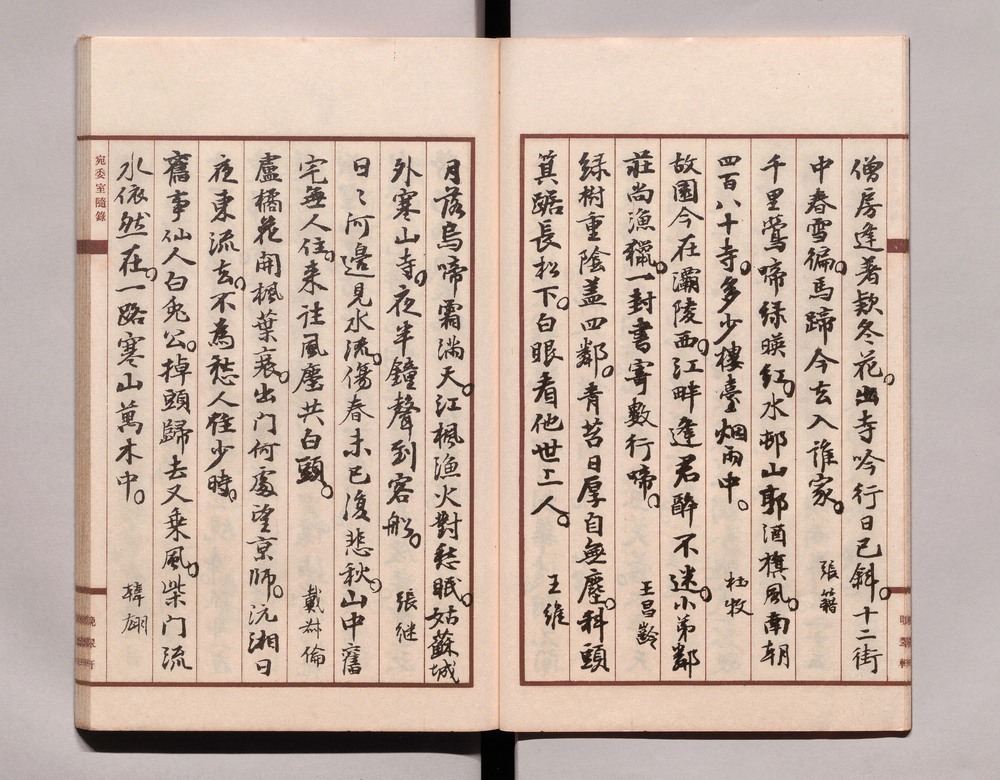 僧房逢着款冬花。出寺吟行日已斜。十二街
中春雪徧。馬蹄今去入誰家。 張籍
千里鶯啼綠暎紅。水邨山郭酒旗風。南朝
四百八十寺。多少樓臺烟雨中。 杜牧
故園今在灞陵西。江畔逢君醉不迷。小弟鄰
莊尚漁獵。一封書寄數行啼。 王昌齡
綠樹重陰蓋四鄰。青苔日厚自無塵。科頭
箕踞長松下。白眼看他世上人。 王維
月落烏啼霜滿天。江楓漁火對愁眠。姑蘇城
外寒山寺。夜半鐘聲到客船。 張継
日〻河邊見水流。傷春未已復悲秋。山中舊
宅無人住。来往風塵共白頭。 戴叔倫
盧橘花開楓葉衰。出门何處望京師。沅湘日
夜東流去。不為愁人住少時。
舊事仙人白兔公。掉頭歸去又乗風。柴门流
水依然在。一路寒山萬木中。 韓翃
宛委室隨錄
晚翠軒
晚翠軒